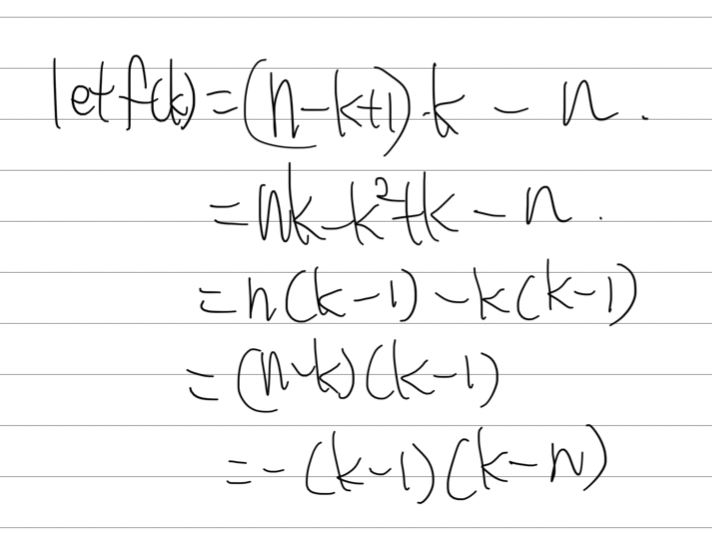 let f(k) = (n-k+1)·k - n.
= nk-k²+k-n.
= n(k-1)-k(k-1)
= (n-k)(k-1)
= -(k-1)(k-n)